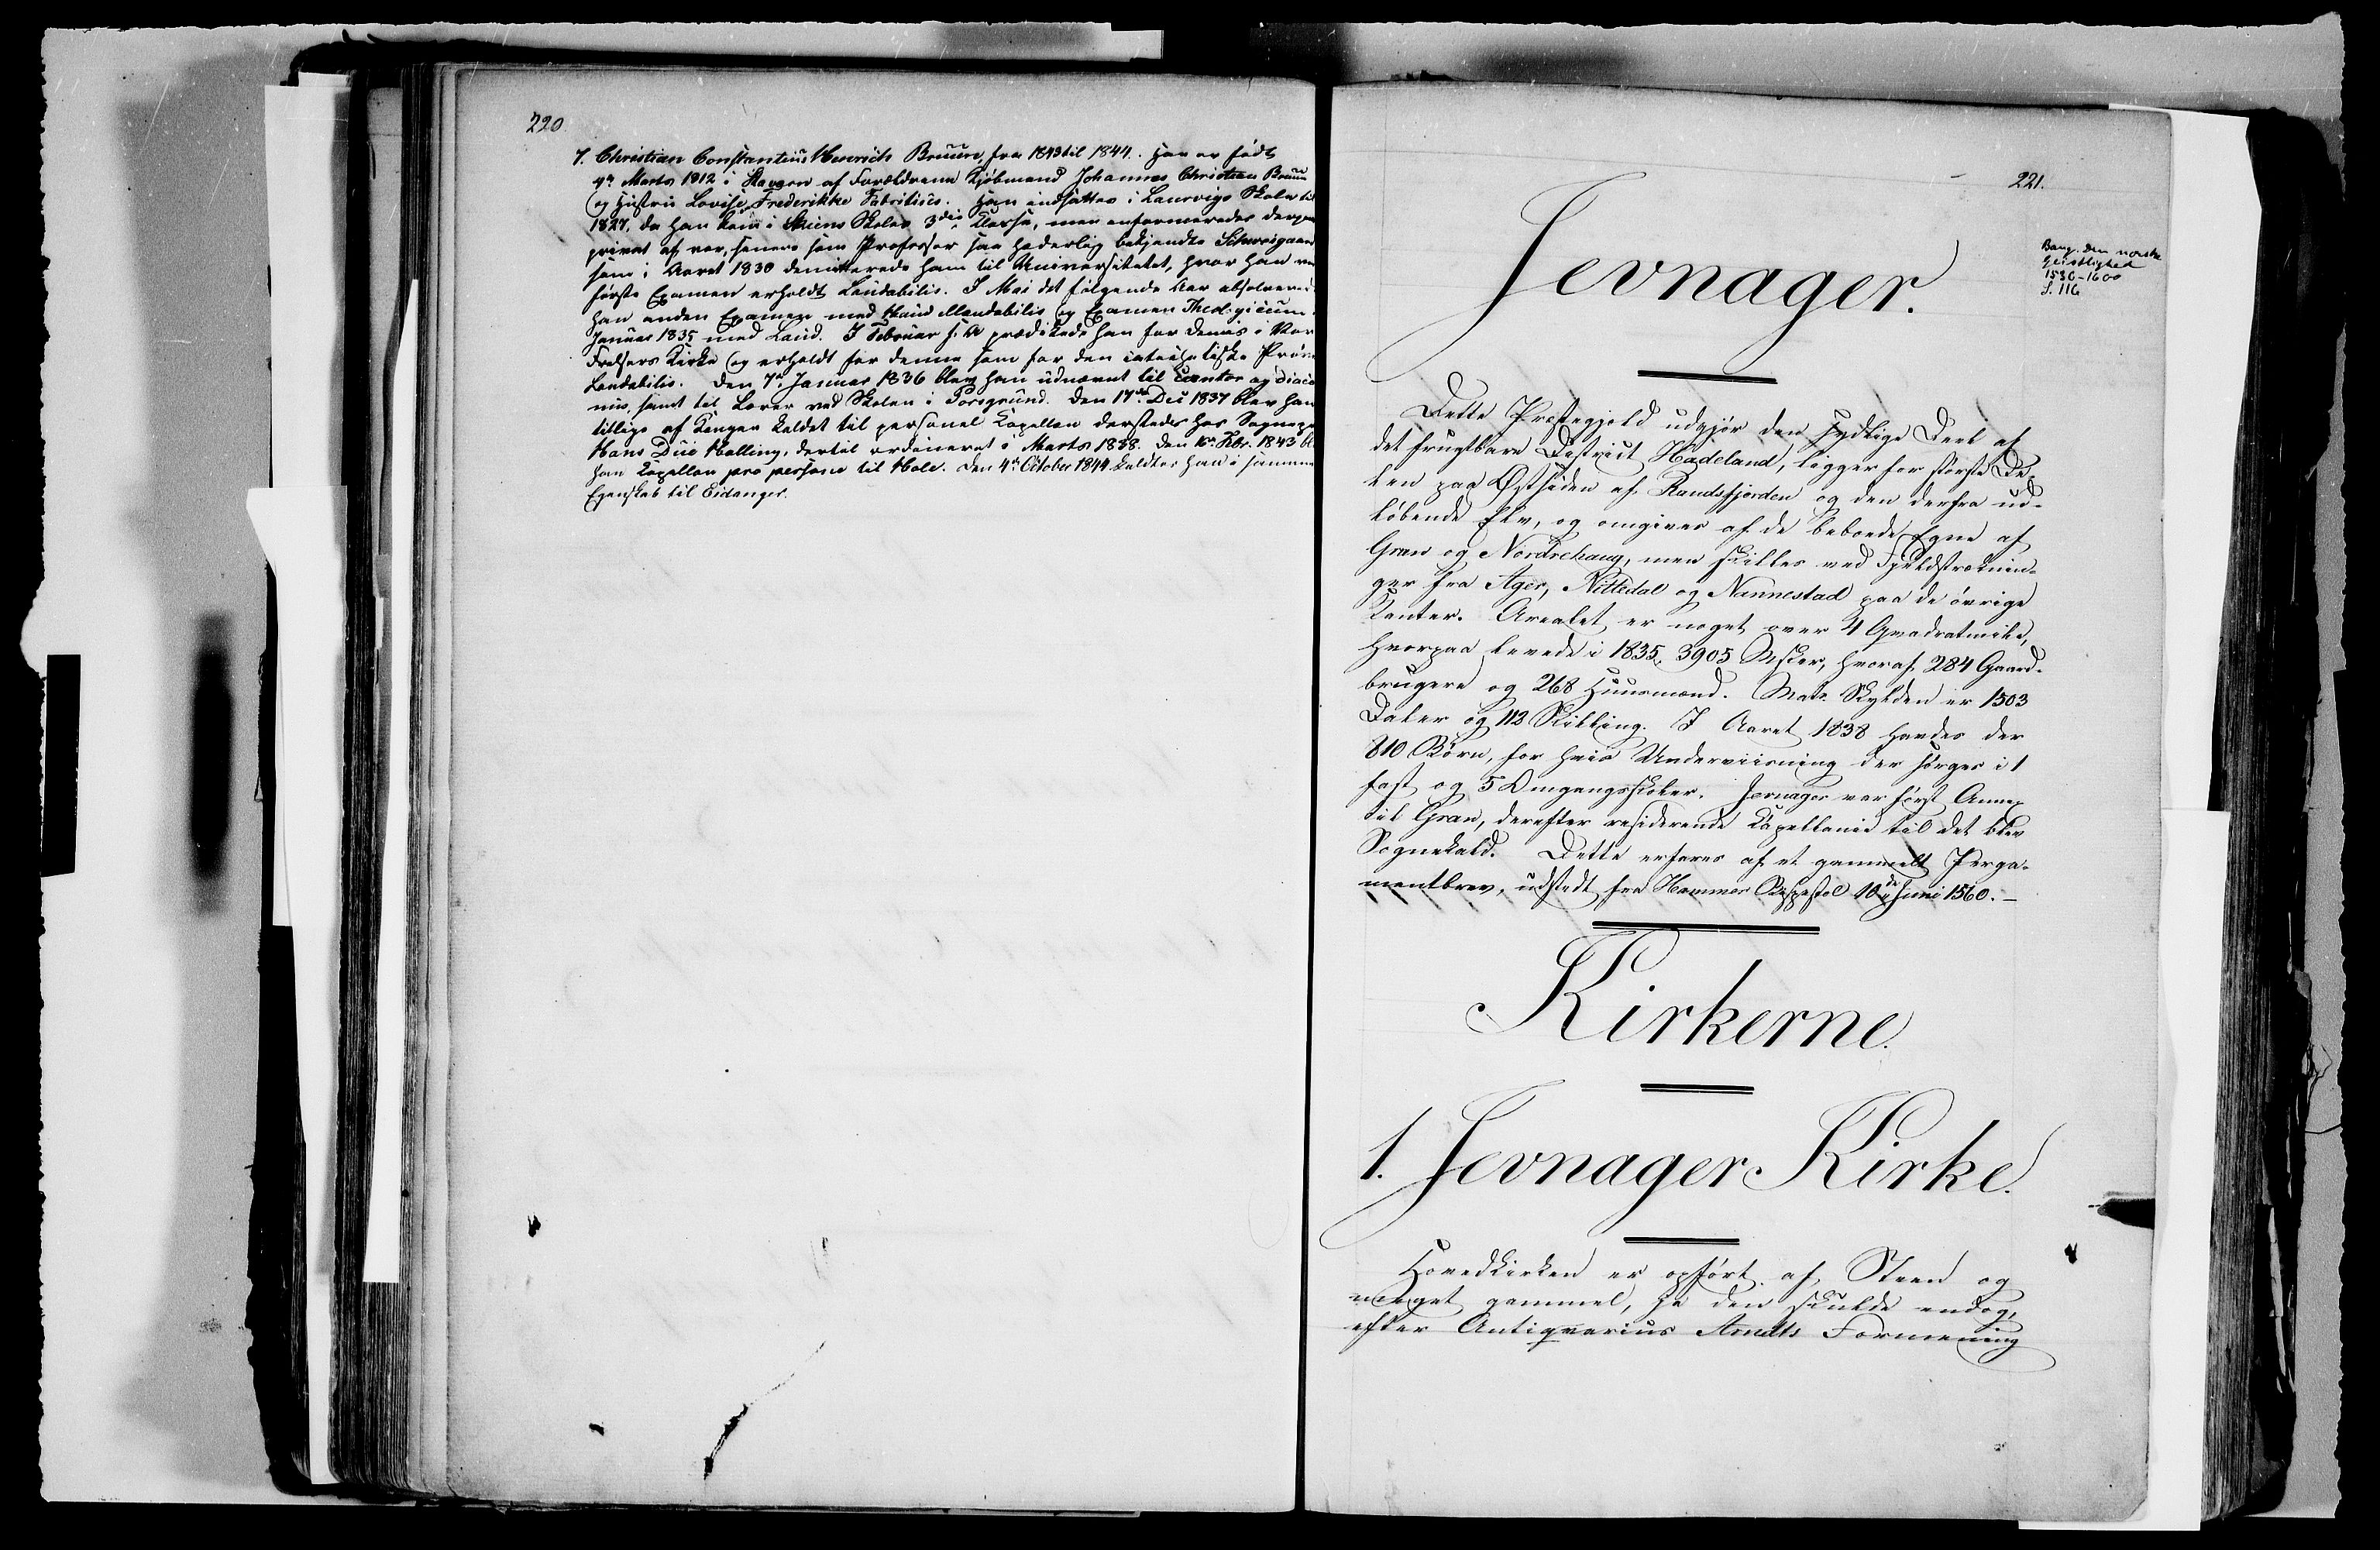 220.
7. Christian Constantius Henrich Bruun, fra 1843 til 1844. Han er født
4de Marts 1812 i Stavern af Forældrene Kjøbmand Johannes Christian Bruun
og Hustru Lovise Frederikke Fabritius. Han indsattes i Laurvigs Skole til
1827, da han kom i Skiens Skoles 3die Classe, men informeredes derpaa
privat af vor, senere som Professor saa hæderlig bekjendte Schweigaard
som i Aaret 1830 demitterede ham til Universitetet, hvor han ved
første Examen erholdt Laudabilis. I Mai det følgende Aar absolverede
han anden Examen med Haud illaudabilis og Examen Theologicum
Januar 1835 med Laud. I Februar s. A. prædikede han for Demis i Vor
Frelsers Kirke og erholdt for denne som for den catechetiske Prøve
Laudabilis. Den 7de Januar 1836 blev han udnævnt til Cantor og Diaco
nus, samt til Lærer ved Skolen i Porsgrund. Den 17de Dec 1837 blev han
tillige af Kongen kaldet til personel Kapellan dersteds hos Sognep
Hans Due Halling, dertil ordineret i Marts 1838. Den 16de Febr. 1843 bl
han Kapellan pro persona til Hole. Den 4de October 1844 kaldtes han i samme
Egenskab til Eidanger.
221.
Bang. Den norske
Geistlighed
1536-1600
S. 116
Jevnager.
Dette Præstegjeld udgjør den sydlige Deel af
det frugtbare District Hadeland, ligger for største De-
len paa Østsiden af Randsfjorden og den derfra ud-
løbende Elv, og omgives af de beboede Egne af
Gran og Nordrehaug, men skilles ved Fjeldstræknin-
ger fra Ager, Nittedal og Nannestad paa de øvrige
Kanter. Arealet er noget over 4 Qvadratmile,
hvorpaa levede i 1835, 3905 Msker, hvoraf 284 Gaard-
brugere og 268 Huusmænd. Matr. Skylden er 1503
Daler og 112 Skilling. I Aaret 1838 havdes der
810 Børn, for hvis Underviisning der sørges i 1
fast og 5 Omgangsskoler. Jevnager var først Annex
til Gran, derefter residerende Kapellanie til det blev
Sognekald. Dette erfares af et gammelt Perga-
mentbrev, udstedt fra Hammer Bispestol 10de Juni 1560. –
Kirkerne.
1. Jevnager Kirke.
Hovedkirken er opført af Steen og
meget gammel, ja den skulde endog,
efter Antiqvarius Arndts Formening